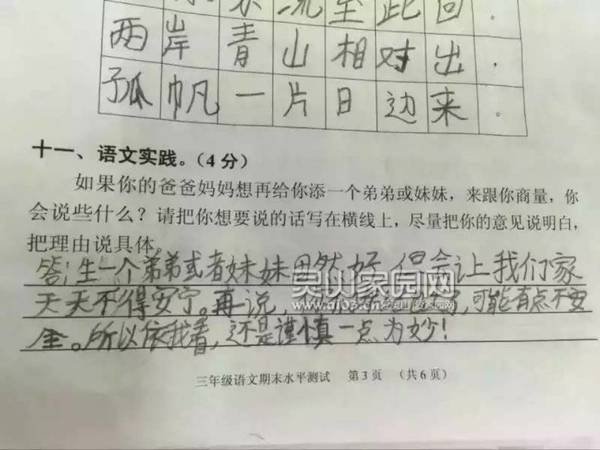 流至此回.
两岸青山相对出.
孤帆一片日边来.
十一、语文实践。(4分)
如果你的爸爸妈妈想再给你添一个弟弟或妹妹,来跟你商量,你
会说些什么?请把你想要说的话写在横线上,尽量把你的意见说明白,
把理由说具体。
答:生一个弟弟或者妹妹固然好,但会让我们家
天天不得安宁。再说,可能有点不安
全。所以依我看,还是谨慎一点为妙!
灵山家园网
三年级语文期末水平测试 第3页 (共6页)